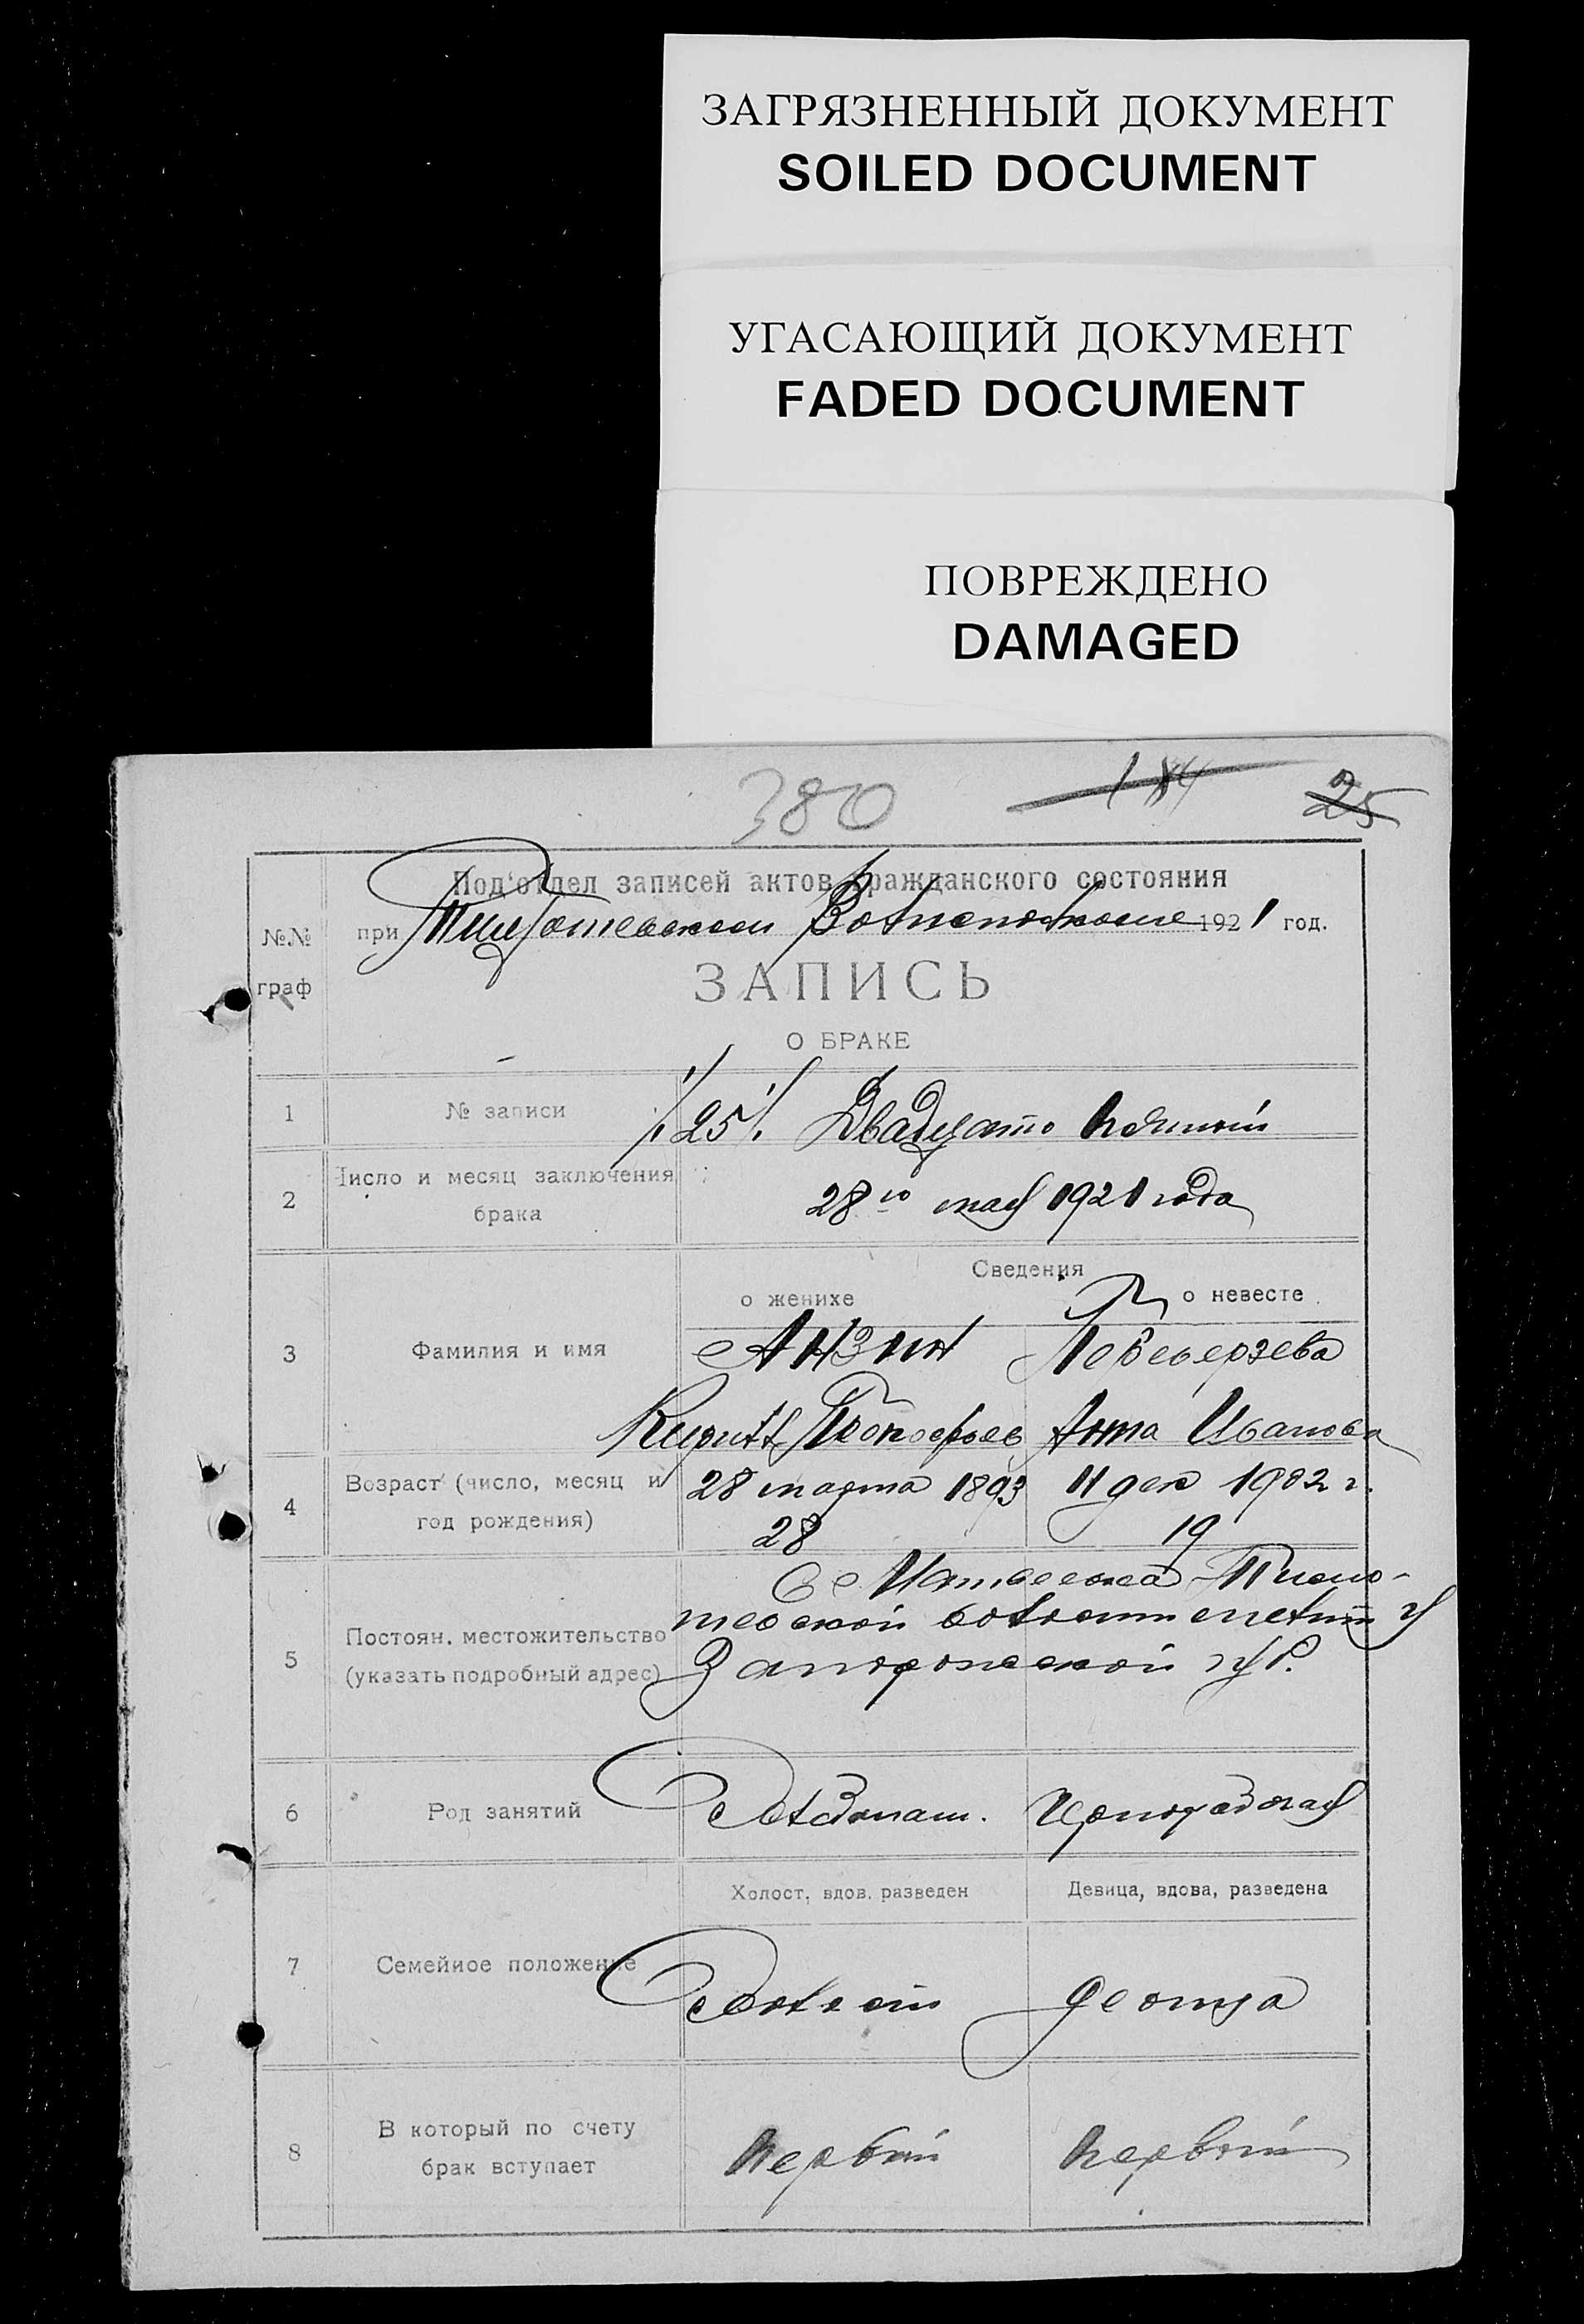 ЗАГРЯЗНЕННЫЙ ДОКУМЕНТ
SOILED DOCUMENT
УГАСАЮЩИЙ ДОКУМЕНТ
FADED DOCUMENT
ПОВРЕЖДЕНО
DAMAGED
380 184 25
Под‘отдел записей актов гражданского состояния
№№ граф
при Волисполкоме 1921 год.
ЗАПИСЬ
О БРАКЕ
1 № записи 25 Двадцать пятый
2 Число и месяц заключения брака 28го мая 1921 года
Сведения
о женихе о невесте
3 Фамилия и имя Анзин Переверзева
Кирилл Прокофьев Анна Иванова
4 Возраст (число, месяц и год рождения) 28 марта 1893 11 дек 1902 г.
28 19
5 Постоян. местожительство (указать подробный адрес)
волости
Запорожской губ.
6 Род занятий Хлебопаш.
Холост, вдов, разведен Девица, вдова, разведена
7 Семейное положение Холост девица
8 В который по счету брак вступает первый первый